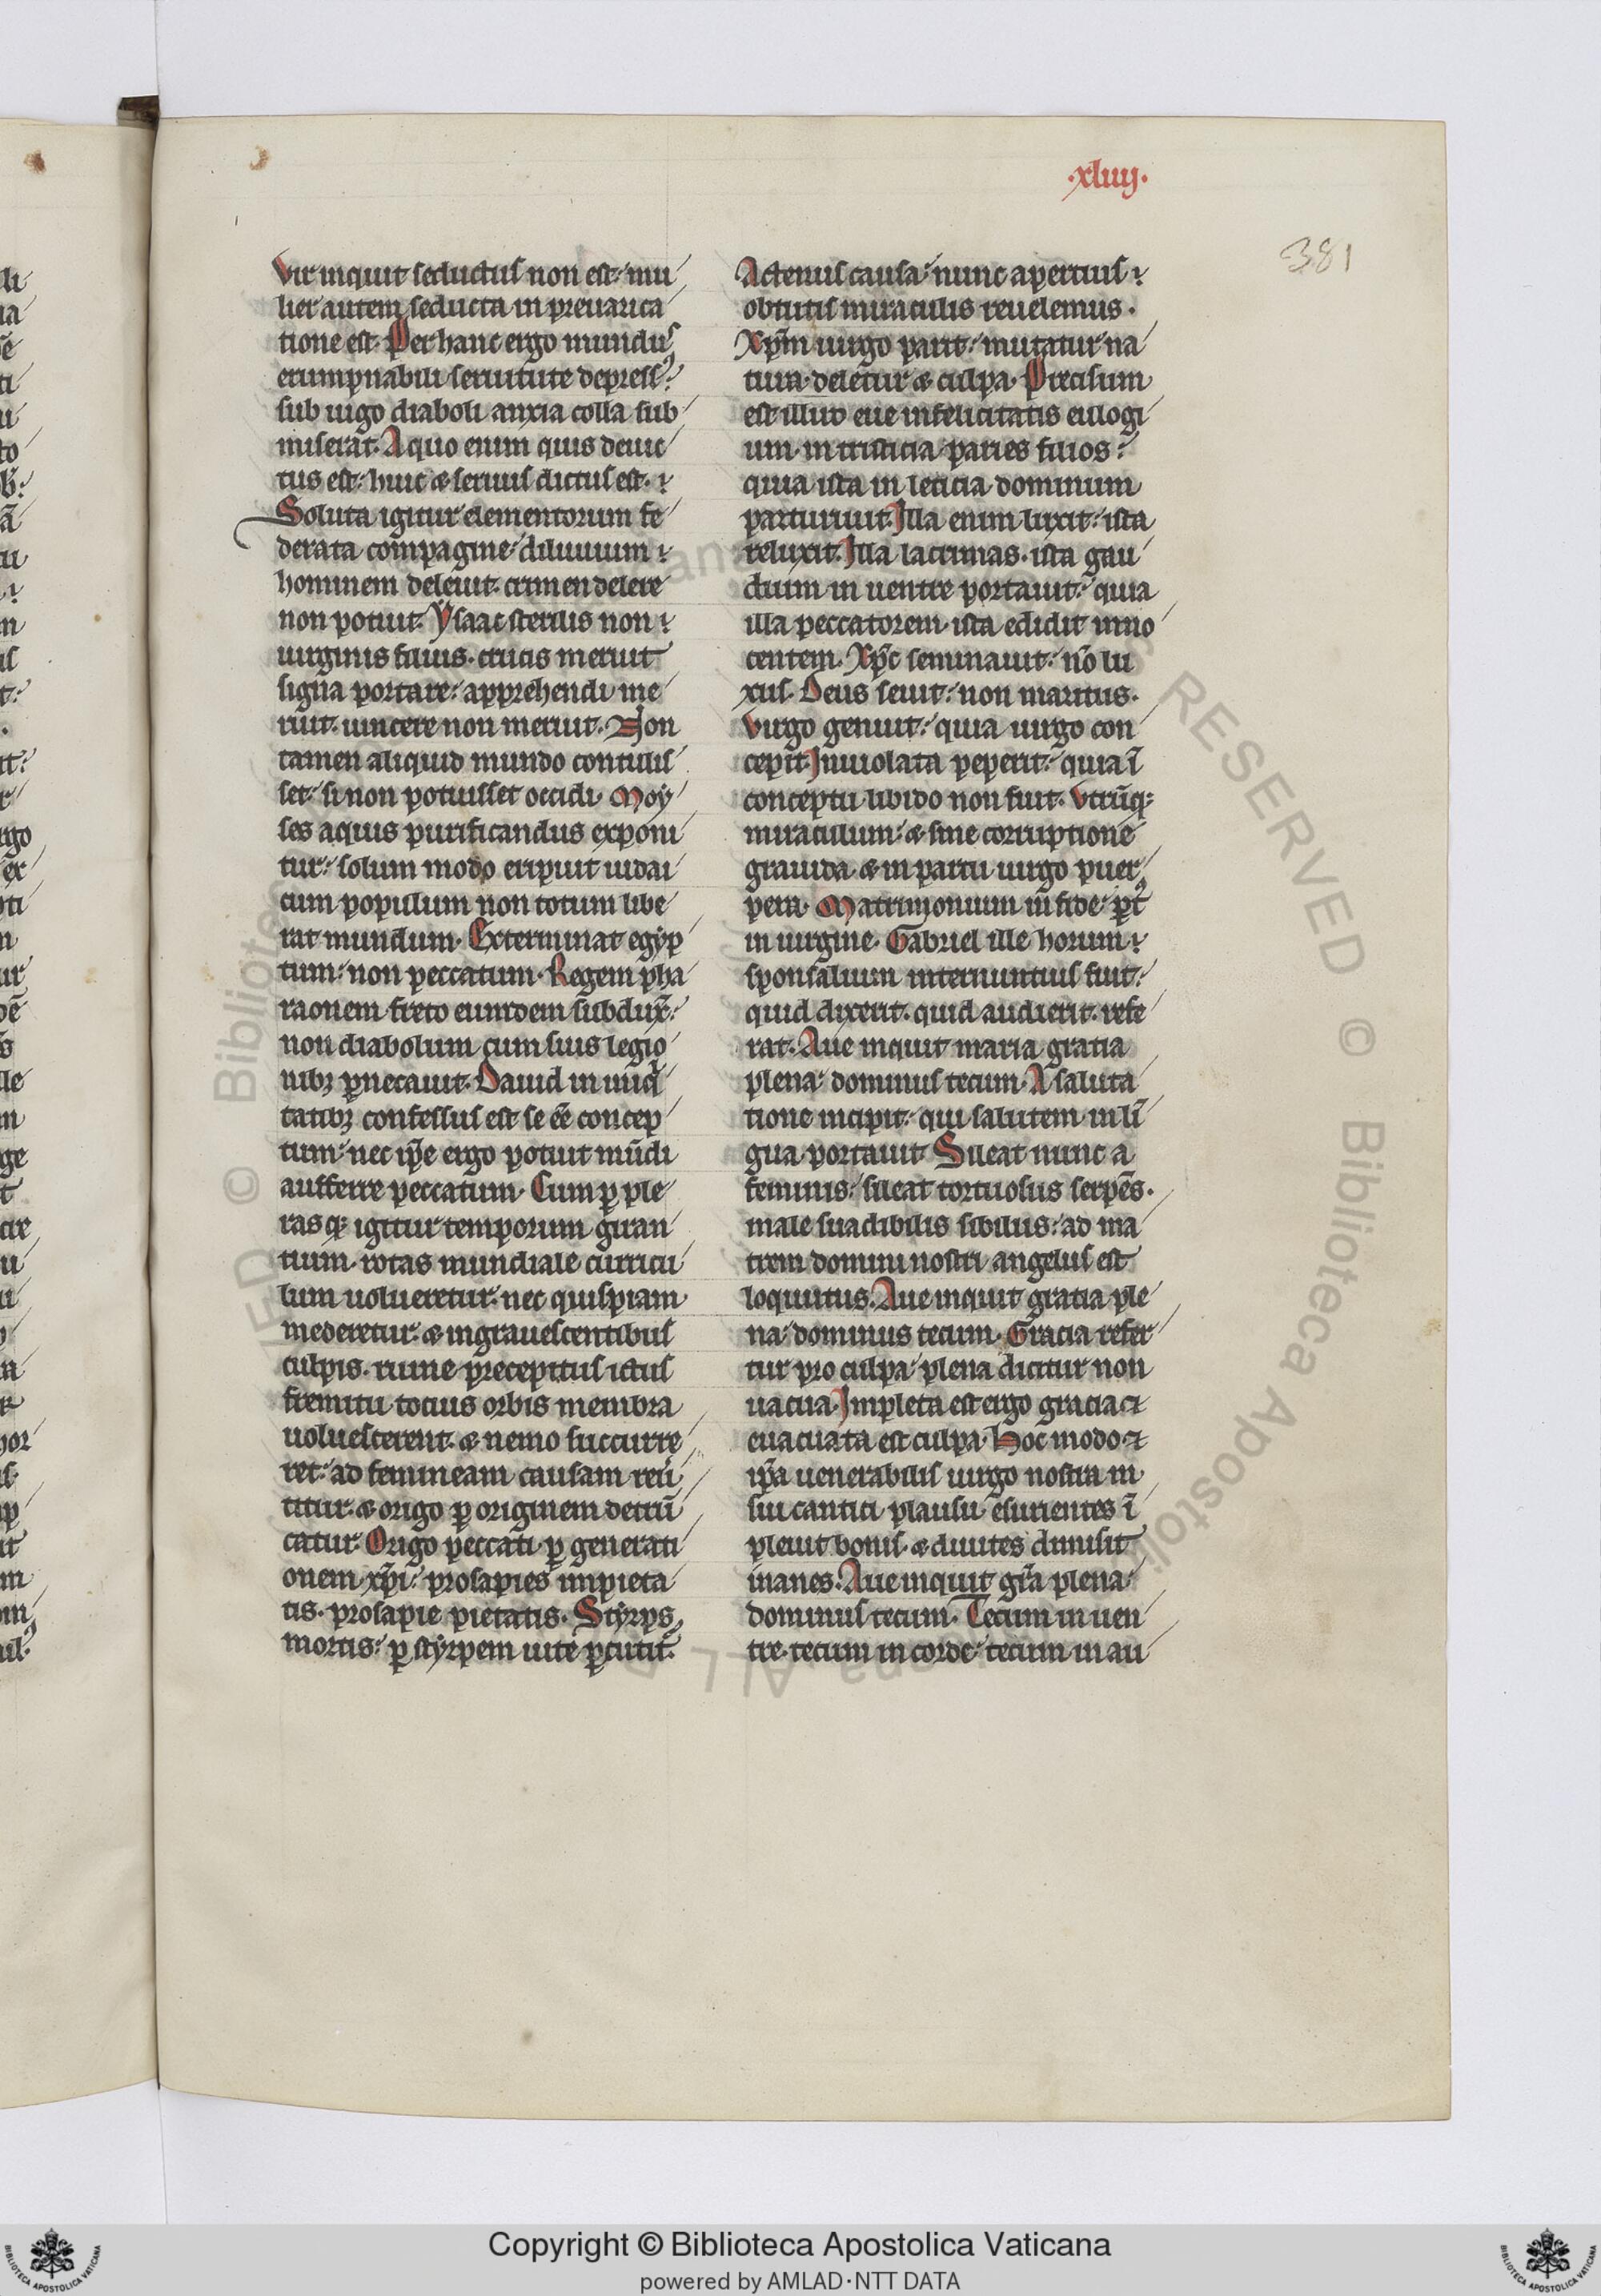 ·xliiij·
381
Vir inquit seductus non est: mu
lier autem seducta in preuarica
tione est. Per hanc ergo mundus
erumpnabili seruitute depress᾽
sub iugo diaboli anxia colla sub
miserat. A quo enim quis deuic
tus est: huic & seruus dictus est.
Soluta igitur elementorum fe
derata compagine: diluuium
hominem deleuit. crimen delere
non potuit. Ysaac sterilis non
uirginis filius. crucis meruit
signa portare: apprehendi me
ruit. uincere non meruit. Non
tamen aliquid mundo contulis
set: si non potuisset occidi. Moy
ses aquis purificandus exponi
tur: solum modo eripuit iudai
cum populum non totum libe
rat mundum. Exterminat egyp
tum: non peccatum. Regem pha
raonem freto eumdem subdux̄:
non diabolum cum suis legio
nibꝫ ꝑnecauit. Dauid in iniq̄
tatibꝫ confessus est se eē concep
tum: nec ip̄e ergo potuit mūdi
aufferre peccatum. Cum ꝑ ple
rasqꝫ igitur temporum giran
tium. rotas mundiale curricu
lum uolueretur. nec quispiam
mederetur. & ingrauescentibus
culpis. ruine precepitus ictus
fremitu tocius orbis membra
uoluescerent. & nemo succurre
ret: ad femineam causam reũ
titur. & origo ꝑ originem detrū
catur. Origo peccati. ꝑ generati
onem xp̄i: prosapies impieta
tis. prosapie pietatis. Styrps
mortis: ꝑ styrpem uite ꝑcutit᾽.
Actenus causa: nunc apertius
obtutis miraculis reuelemus.
Xp̄m uirgo parit: mutatur na
tura. deletur & culpa. Precisum
est illud eue infelicitatis eulogi
um. in tristicia paries filios:
quia ista in leticia dominum
parturiuit. Illa enim luxit: ista
reluxit. Illa lacrimas. ista gau
dium in uentre portauit: quia
illa peccatorem. ista edidit inno
centem. Xp̄c seminauit: nō lu
xus. Deus seuit: non maritus.
Virgo genuit: quia uirgo con
cepit. Inuiolata peperit: quia ī
conceptu libido non fuit. Vtrūqꝫ
miraculum: & sine corruptione
grauida & in partu uirgo puer
pera. Matrimonium in fide: pt᾽
in uirgine. Gabriel ille horum
sponsalium internuntius fuit:
quid dixerit. quid audierit. refe
rat. Aue inquit maria gratia
plena: dominus tecum. A saluta
tione incipit: qui salutem in lī
gua portauit. Sileat nunc a
feminis: sileat tortuosus serpēs.
male suadibilis sibilus: ad ma
trem domini nostri angelus est
loquutus. Aue inquit gratia ple
na: dominus tecum. Gracia refer
tur pro culpa: plena dicitur non
uacua. Impleta est ergo gracia &
euacuata est culpa. Hoc modo &
ip̄a uenerabilis uirgo nostra in
sui cantici plausu. esurientes ī
pleuit bonis. & diuites dimisit
inanes. Aue inquit gr̄a plena:
dominus tecum. Tecum in uen
tre. tecum in corde: tecum in au
Copyright © Biblioteca Apostolica Vaticana
powered by AMLAD·NTT DATA